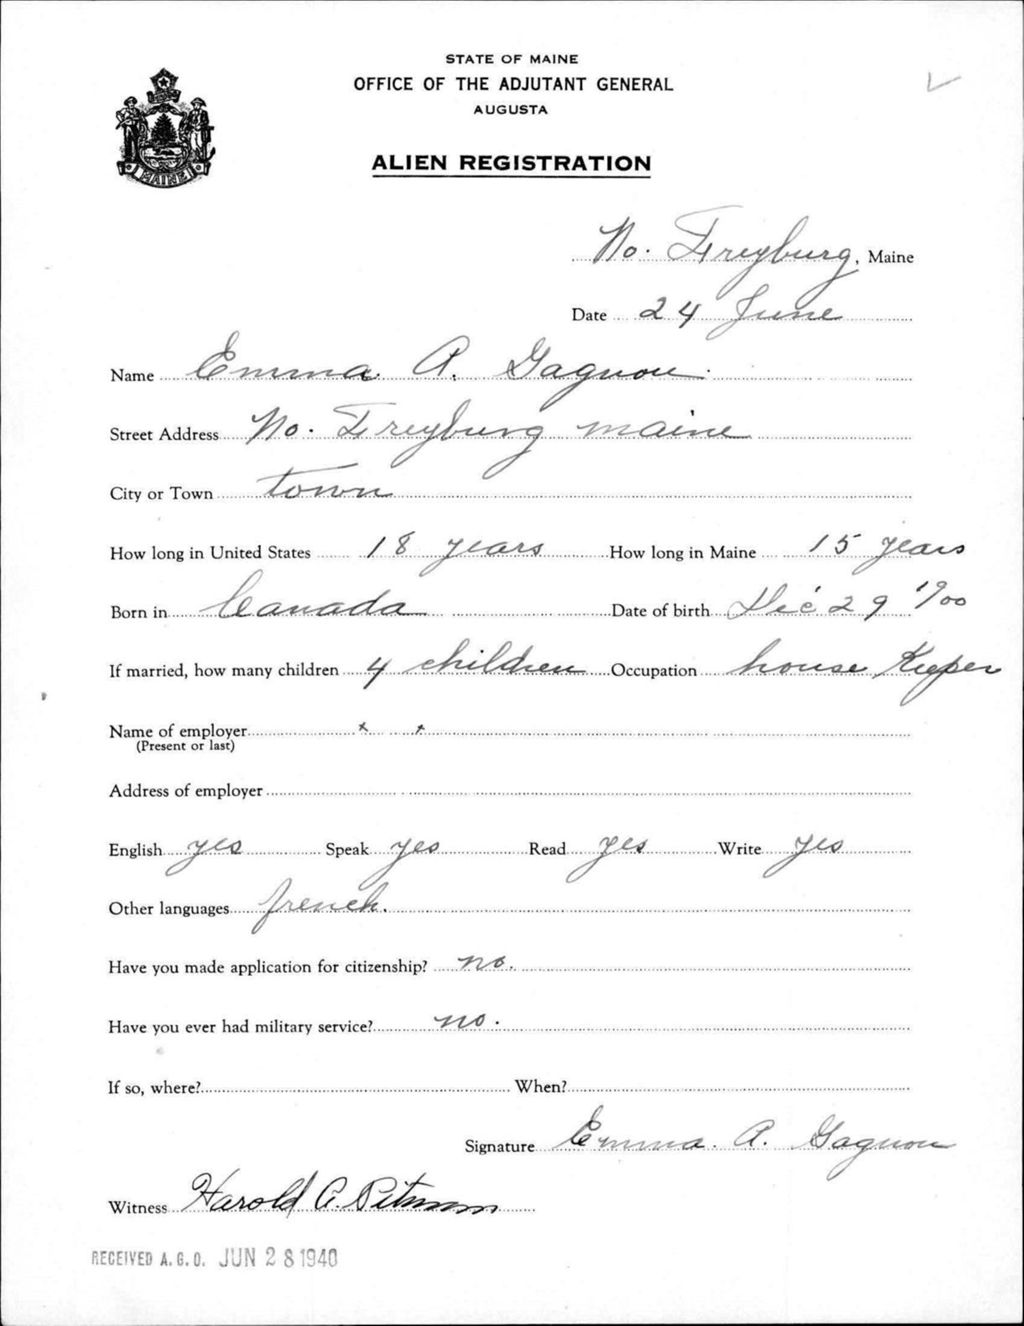 STATE OF MAINE
OFFICE OF THE ADJUTANT GENERAL
AUGUSTA
ALIEN REGISTRATION
MAINE
No. Freyburg, Maine
Date 24 June
Name Emma. A. Gagnon.
Street Address No. Freyburg maine
City or Town town
How long in United States 18 years How long in Maine 15 years
Born in Canada Date of birth Dec 29 1900
If married, how many children 4 children Occupation house Keeper
Name of employer x x
(Present or last)
Address of employer
English yes Speak yes Read yes Write yes
Other languages french.
Have you made application for citizenship? no.
Have you ever had military service? no.
If so, where? When?
Signature Emma. A. Gagnon
Witness Harold A. Pitman
RECEIVED A. G. O. JUN 28 1940